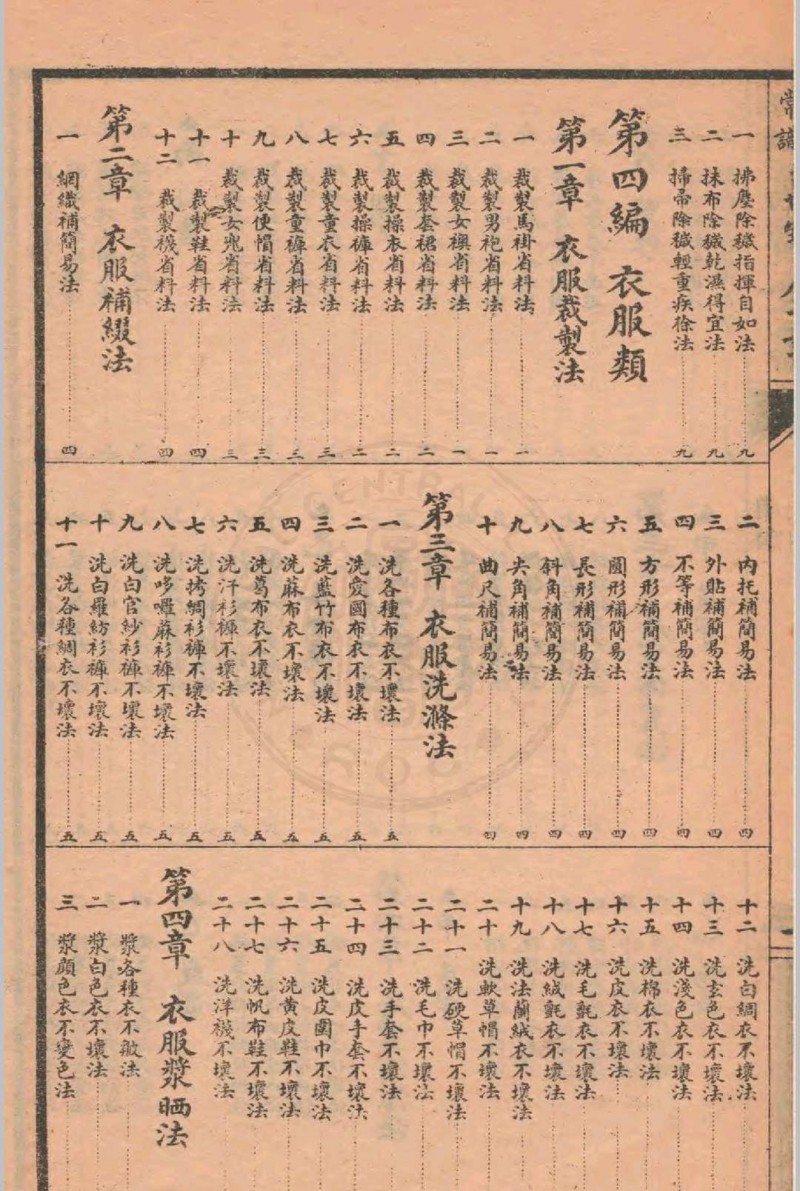 一 拂塵除穢指揮自如法 九
二 抹布除穢乾濕得宜法 九
三 掃帚除穢輕重疾徐法 九
第四編 衣服類
第一章 衣服裁製法
一 裁製馬褂省料法 一
二 裁製男袍省料法 一
三 裁製女襖省料法 一
四 裁製套裙省料法 二
五 裁製操衣省料法 二
六 裁製操褲省料法 二
七 裁製童衣省料法 三
八 裁製童褲省料法 三
九 裁製便帽省料法 三
十 裁製女兜省料法 三
十一 裁製鞋省料法 四
十二 裁製襪省料法 四
第二章 衣服補綴法
一 網織補簡易法 四
二 內托補簡易法 四
三 外貼補簡易法 四
四 不等補簡易法 四
五 方形補簡易法 四
六 圓形補簡易法 四
七 長形補簡易法 四
八 斜角補簡易法 四
九 尖角補簡易法 四
十 曲尺補簡易法 四
第三章 衣服洗滌法
一 洗各種布衣不壞法 五
二 洗愛國布衣不壞法 五
三 洗藍竹布衣不壞法 五
四 洗蔴布衣不壞法 五
五 洗葛布衣不壞法 五
六 洗汗衫褲不壞法 五
七 洗拷綢衫褲不壞法 五
八 洗哆囉蔴衫褲不壞法 五
九 洗白官紗衫褲不壞法 五
十 洗白羅紡衫褲不壞法 五
十一 洗各種綢衣不壞法 五
十二 洗白綢衣不壞法
十三 洗玄色衣不壞法
十四 洗淺色衣不壞法
十五 洗棉衣不壞法
十六 洗皮衣不壞法
十七 洗毛氈衣不壞法
十八 洗絨氈衣不壞法
十九 洗法蘭絨衣不壞法
二十 洗軟草帽不壞法
二十一 洗硬草帽不壞法
二十二 洗毛巾不壞法
二十三 洗手套不壞法
二十四 洗皮手套不壞法
二十五 洗皮圍巾不壞法
二十六 洗黃皮鞋不壞法
二十七 洗帆布鞋不壞法
二十八 洗洋襪不壞法
第四章 衣服漿晒法
一 漿各種衣不皺法
二 漿白色衣不壞法
三 漿顏色衣不變色法